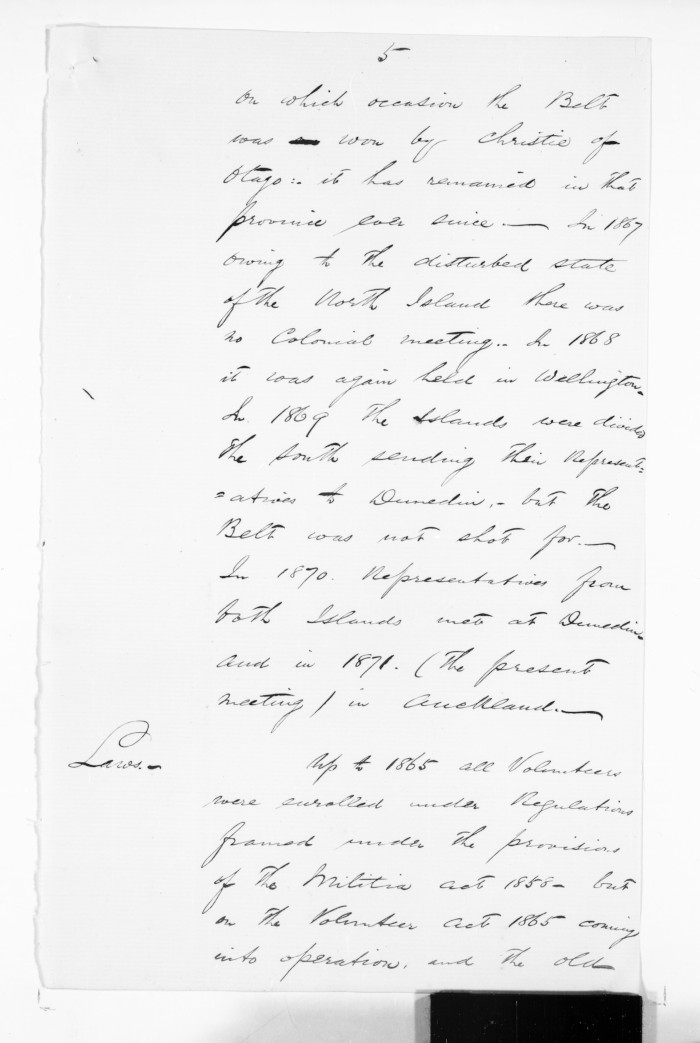 5
on which occasion the Belt
was won by Christie of
Otago:- it has remained in that
province ever since.— In 1867
owing to the disturbed state
of the North Island there was
no Colonial meeting.. In 1868
it was again held in Wellington-
In 1869 the Islands were divided
the South sending their Represent=
=atives to Dunedin,- but the
Belt was not shot for.—
In 1870. Representatives from
both Islands met at Dunedin-
and in 1871. (the present
meeting) in Auckland.—
Laws.-
Up to 1865 all Volunteers
were enrolled under Regulations
framed under the provisions
of the Militia Act 1858- but
on the Volunteer Act 1865 coming
into operation, and the old